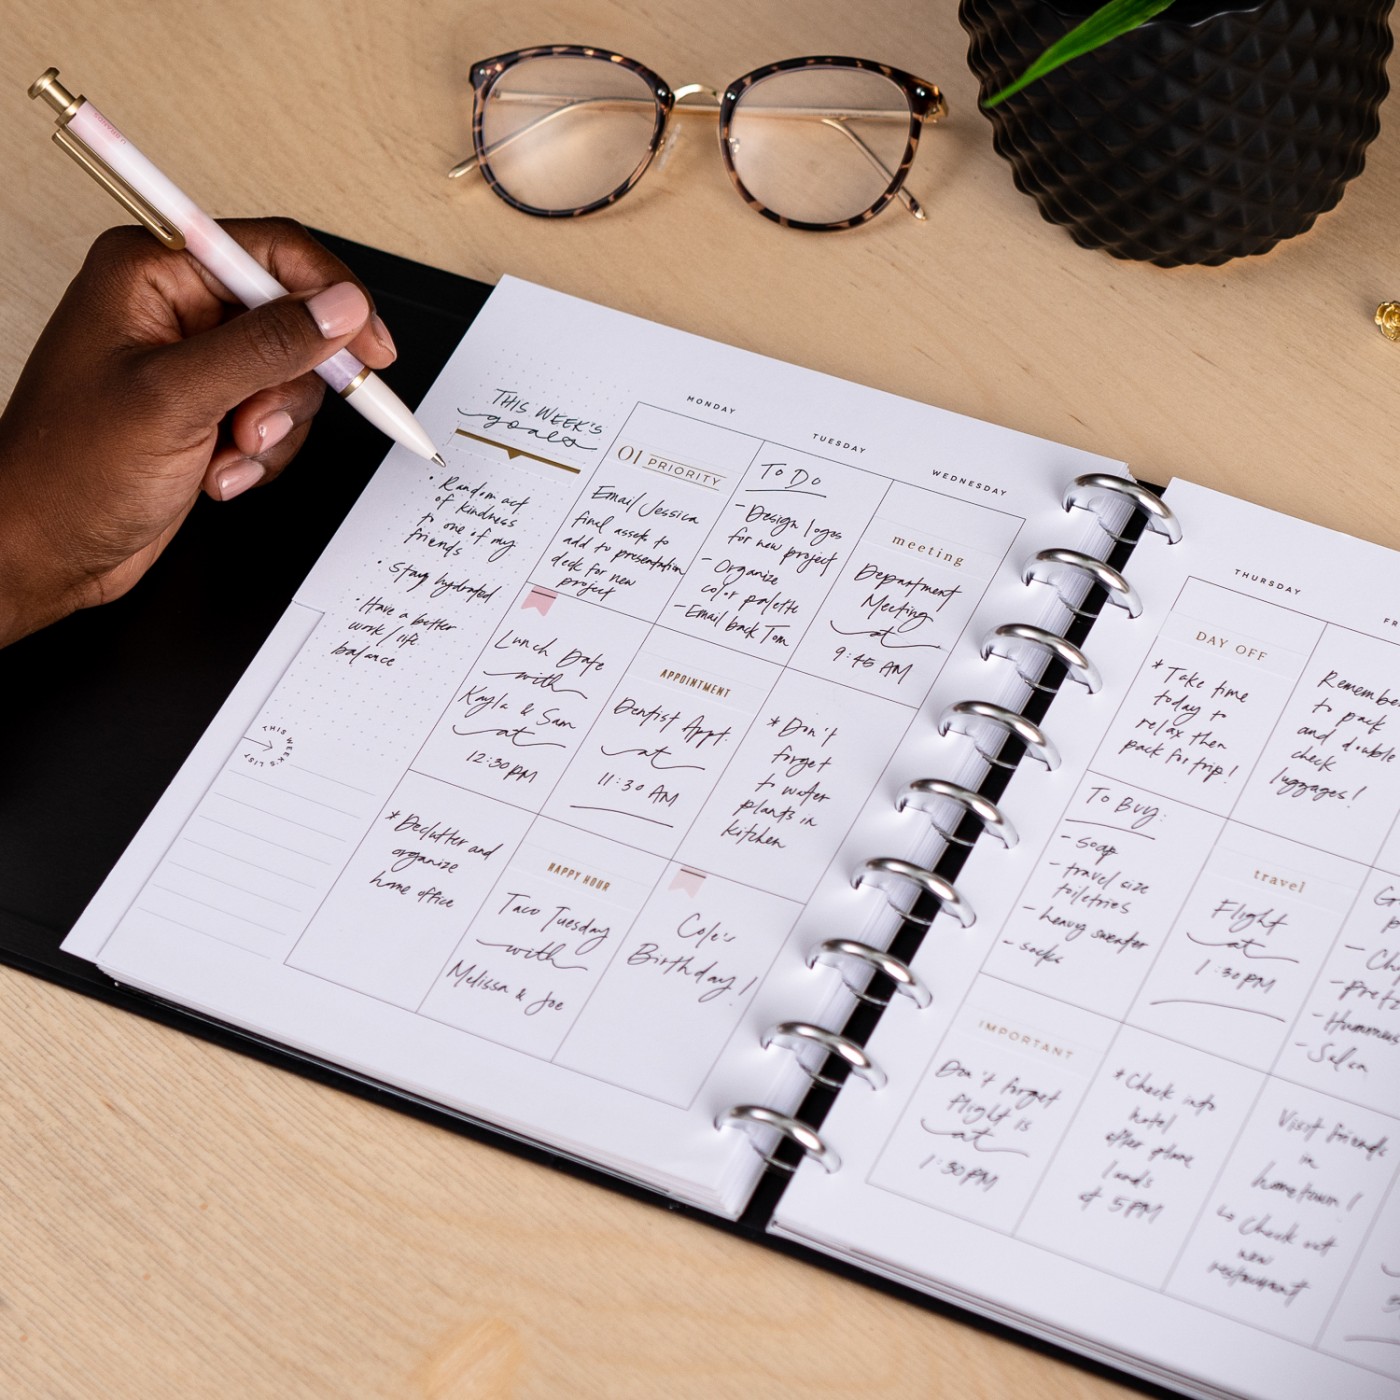 THIS WEEK'S
goals
• Random act
of kindness
to one of my
friends
• Stay hydrated
• Have a better
work/life
balance
THIS WEEK'S LIST
MONDAY
01 PRIORITY
Email Jessica
final assets to
add to presentation
deck for new
project
Lunch Date
with
Kayla & Sam
at
12:30 PM
* Declutter and
organize
home office
TUESDAY
To Do
- Design logos
for new project
- Organize
color palette
- Email back Tom
APPOINTMENT
Dentist Appt.
at
11:30 AM
HAPPY HOUR
Taco Tuesday
with
Melissa & Joe
WEDNESDAY
meeting
Department
Meeting
at
9:45 AM
* Don't
forget
to water
plants in
kitchen
Cole's
Birthday!
THURSDAY
DAY OFF
* Take time
today to
relax then
pack for trip!
To Buy:
- soap
- travel size
toiletries
- heavy sweater
- socks
IMPORTANT
Don't forget
flight is
at
1:30PM
FR
Remember
to pack
and double
check
luggages!
travel
Flight
at
1:30PM
* Check into
hotel
after plane
lands
@ 5PM
- Hummus
- Salsa
Visit friends
in
hometown!
Check out
new
restaurant